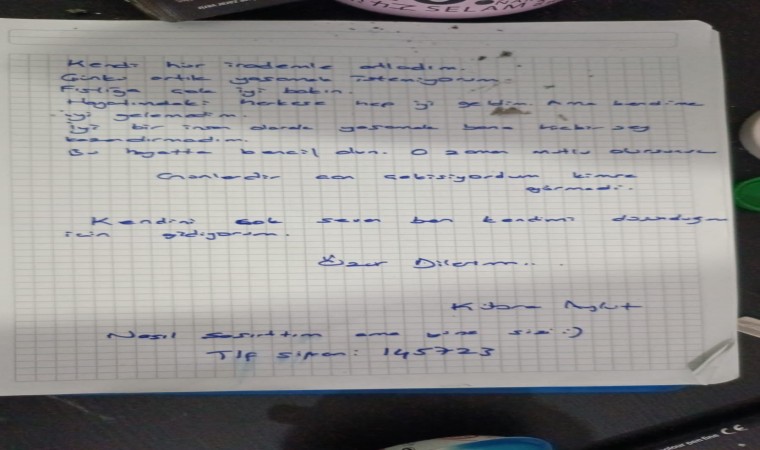 Kendi hür irademle atladım.
Çünkü artık yaşamak istemiyorum.
Fıstığa çok iyi bakın.
Hayatımdaki herkese hep iyi geldim. Ama kendime
iyi gelemedim.
İyi bir insan olarak yaşamak bana hiçbir şey
kazandırmadı.
Bu hayatta bencil olun. O zaman mutlu olursunuz
Günlerdir can çekişiyordum kimse
görmedi.
Kendini çok seven ben kendimi
için gidiyorum.
Özür Dilerim..
Nasıl şaşırttım ama yine sizi :)
Tlf şifrem: 145723